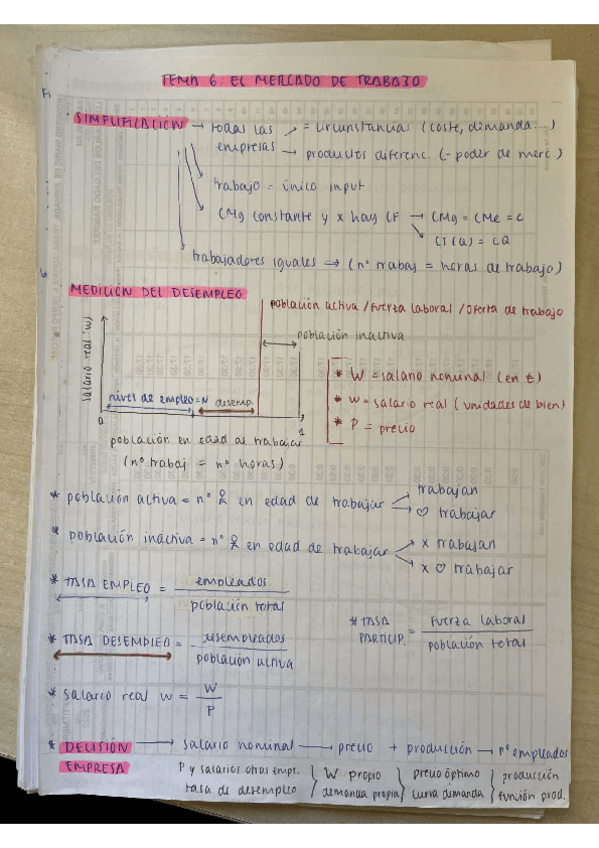 TEMA 6: EL MERCADO DE TRABAJO
SIMPLIFICACIÓN → todas las empresas → = circunstancias (coste, demanda...)
→ productos diferenc. (- poder de merc.)
trabajo = único input
CMg constante y x hay CF → CMg = CMe = C
CT(Q) = CQ
trabajadores iguales → (nº trabaj = horas de trabajo)
MEDICIÓN DEL DESEMPLEO
población activa / fuerza laboral / oferta de trabajo
población inactiva
salario real (w)
nivel de empleo = N desemp.
0 1
población en edad de trabajar
(nº trabaj = nº horas)
* W = salario nominal (en €)
* w = salario real (unidades de bien)
* P = precio
* población activa = nº en edad de trabajar
trabajan
♡ trabajar
* población inactiva = nº en edad de trabajar
x trabajan
x ♡ trabajar
* TASA EMPLEO = empleados / población total
* TASA PARTICIP. = fuerza laboral / población total
* TASA DESEMPLEO = desempleados / población activa
* salario real w = W / P
* DECISIÓN EMPRESA → salario nominal → precio + producción → nº empleados
P y salarios otras empr. } W propio } precio óptimo } producción
tasa de desempleo } demanda propia } curva demanda } función prod.